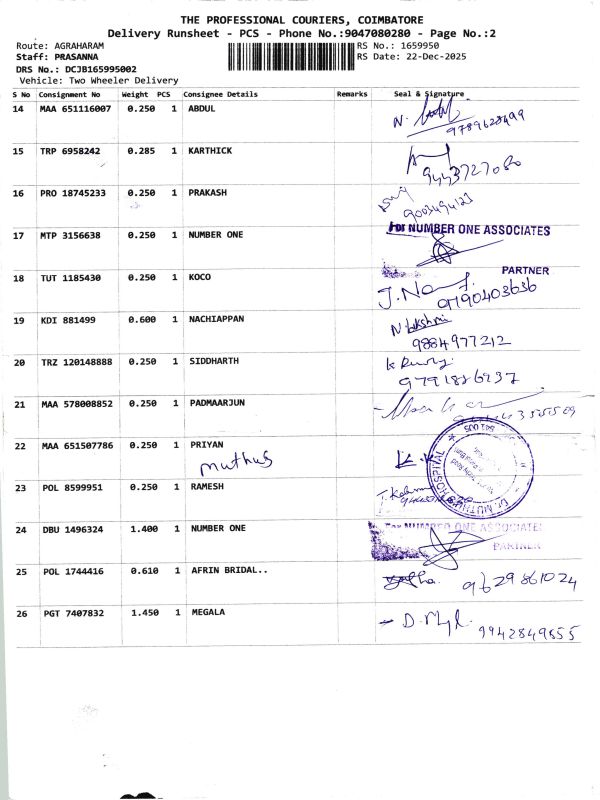 THE PROFESSIONAL COURIERS, COIMBATORE
Delivery Runsheet - PCS - Phone No.:9047080280 - Page No.:2
Route: AGRAHARAM RS No.: 1659950
Staff: PRASANNA RS Date: 22-Dec-2025
DRS No.: DCJB165995002
Vehicle: Two Wheeler Delivery
S No Consignment No Weight PCS Consignee Details Remarks Seal & Signature
14 MAA 651116007 0.250 1 ABDUL
9789628499
15 TRP 6958242 0.285 1 KARTHICK
9443727080
16 PRO 18745233 0.250 1 PRAKASH
9003494123
17 MTP 3156638 0.250 1 NUMBER ONE For NUMBER ONE ASSOCIATES
PARTNER
18 TUT 1185430 0.250 1 KOCO
9790403636
19 KDI 881499 0.600 1 NACHIAPPAN N. Lakshmi
9884977212
20 TRZ 120148888 0.250 1 SIDDHARTH
9791886937
21 MAA 578008852 0.250 1 PADMAARJUN
22 MAA 651507786 0.250 1 PRIYAN
muthus
Dr. MUTHUS HOSPITAL
641 005
23 POL 8599951 0.250 1 RAMESH
24 DBU 1496324 1.400 1 NUMBER ONE For NUMBER ONE ASSOCIATES
PARTNER
25 POL 1744416 0.610 1 AFRIN BRIDAL..
9629861024
26 PGT 7407832 1.450 1 MEGALA
9942849555